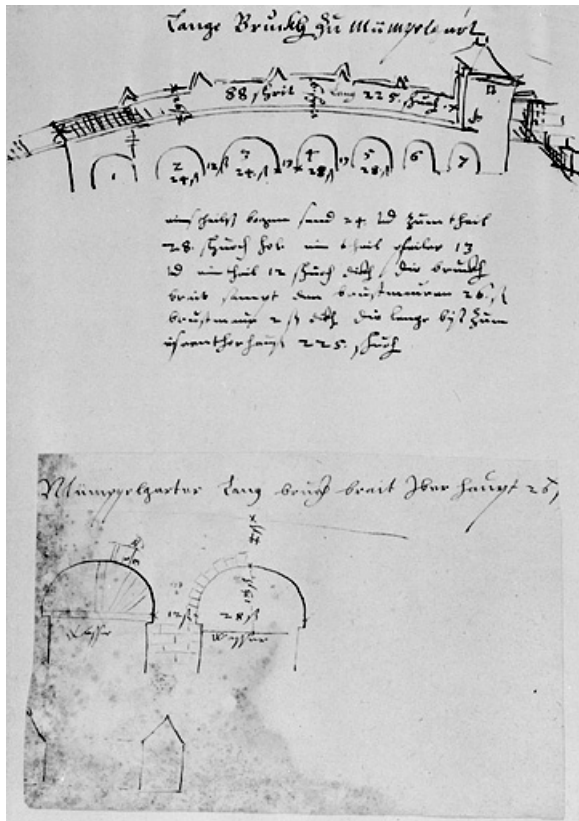 Lange Bruckh zu Mümpelgart
88 schrit Lang 225. schuch
1 2 3 4 5 6 7
24. ß 12 ß 24. ß 13 28 ß 13 28. ß
bogen send 24. vnd zum theil
28. schuch hoh ein theil pfeiler 13
vnd ein theil 12 schuch dikh die bruckh
breit sampt den brustmauren 26. ß
brustmaur 2 ß dikh die lange biß zum
225. schuch
Mümppelgarter Lang brückh breit Iber haupt 26
12 ß 28 ß
Wasser Wasser